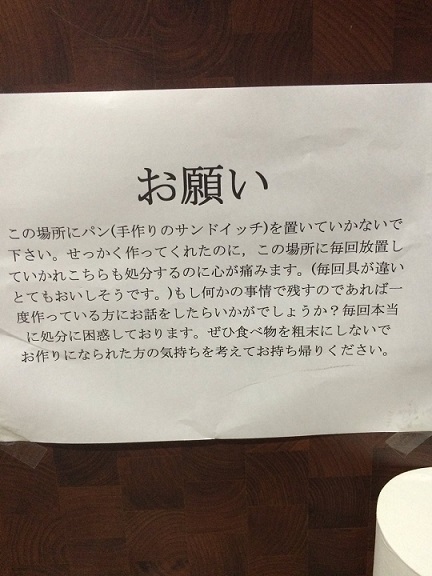 お願い
この場所にパン(手作りのサンドイッチ)を置いていかないで
下さい。せっかく作ってくれたのに，この場所に毎回放置し
ていかれこちらも処分するのに心が痛みます。(毎回具が違い
とてもおいしそうです。)もし何かの事情で残すのであれば一
度作っている方にお話をしたらいかがでしょうか？毎回本当
に処分に困惑しております。ぜひ食べ物を粗末にしないで
お作りになられた方の気持ちを考えてお持ち帰りください。